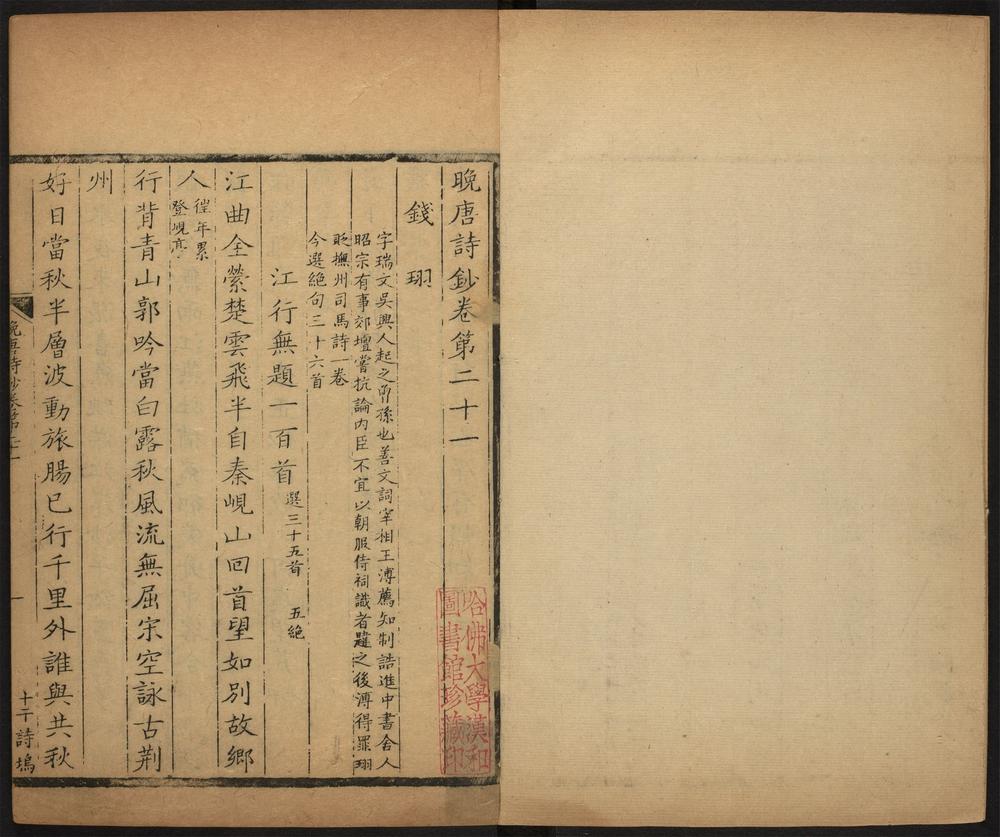 晚唐詩鈔卷第二十一
錢珝
字瑞文吳興人起之甫孫也善文詞宰相王溥薦知制誥進中書舍人
昭宗有事郊壇嘗抗論內臣不宜以朝服侍祠識者韙之後溥得罪珝
貶撫州司馬詩一卷
今選絕句三十六首
江行無題一百首 選三十五首 五絕
江曲全縈楚雲飛半自秦峴山回首望如別故鄉
人 催年累
登峴亭
行背青山郭吟當白露秋風流無屈宋空詠古荆
州
好日當秋半層波動旅腸已行千里外誰與共秋
晚唐詩鈔卷第二十一
一
十干詩塢
哈佛大學漢和
圖書館珍藏印